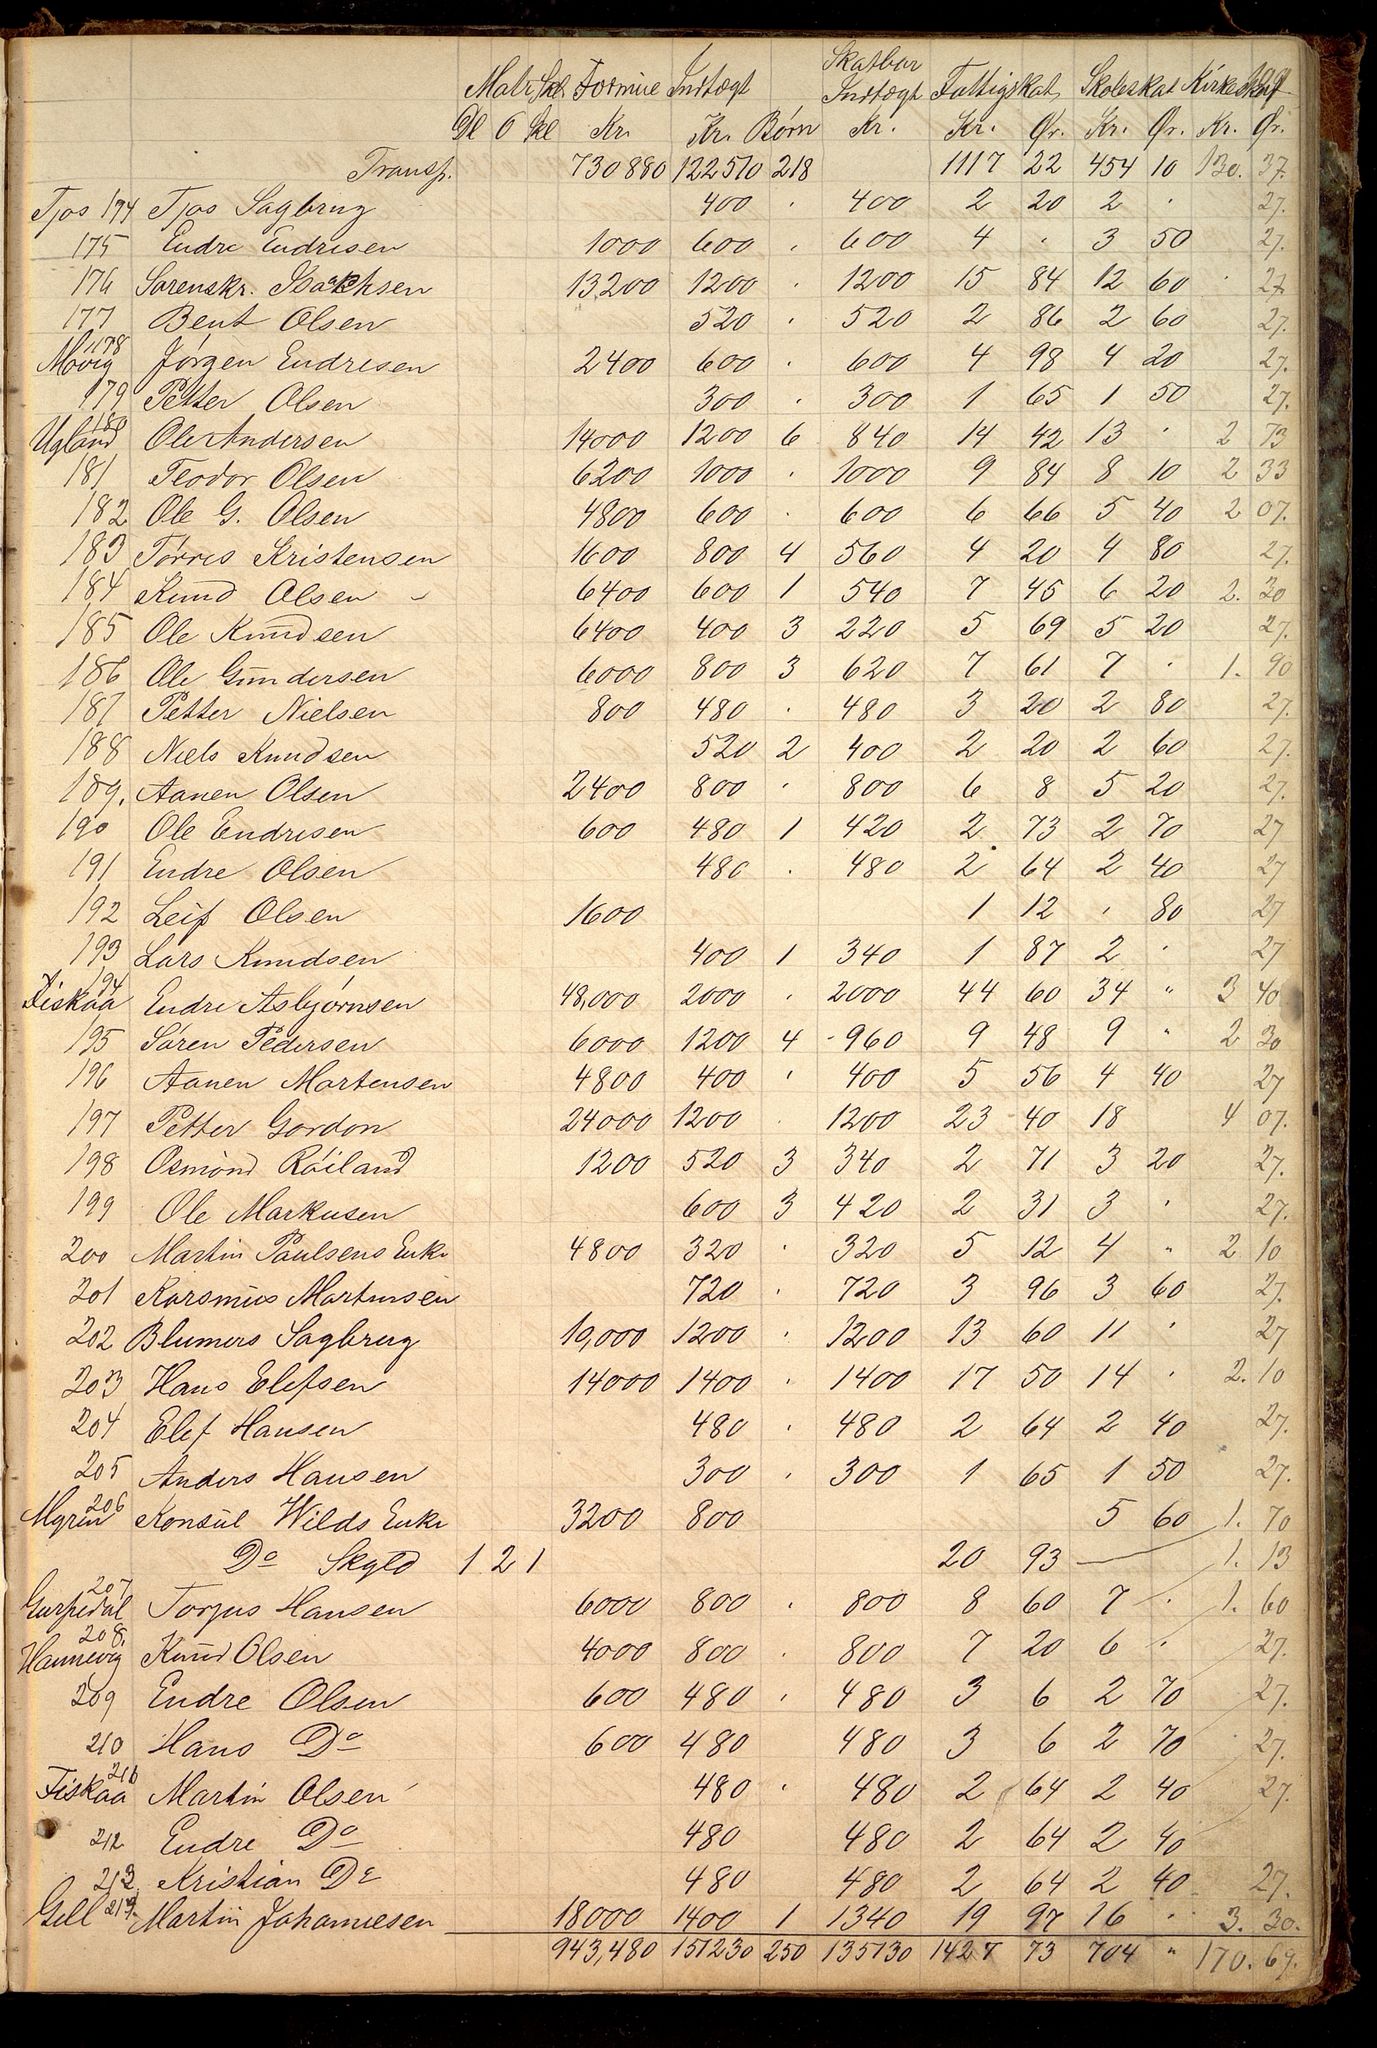 Skatbar
Matr. Skl Formue Indtægt Indtægt Fattigskat Skoleskat Kirkeskat
Dl O Skl Kr. Kr. Børn Kr. Kr. Ør. Kr. Ør. Kr. Ør.
Transp. 730880 122510 218 1117 22 454 10 130. 37.
Tjos 174 Tjos Sagbrug 400 . 400 2 20 2 . 27.
175 Endre Endresen 1000 600 . 600 4 . 3 50 27.
176 Sorenskr. Isachsen 13200 1200 . 1200 15 84 12 60 . 27
177 Bent Olsen 520 . 520 2 86 2 60 27.
178
Movig Jørgen Endresen 2400 600 . 600 4 98 4 20 27.
179 Petter Olsen 300 . 300 1 65 1 50 27.
180
Ugland Ole Andersen 14000 1200 6 840 14 42 13 . 2 73
181 Teodor Olsen 6200 1000 . 1000 9 84 8 10 2 33
182 Ole G. Olsen 4800 600 . 600 6 66 5 40 2 07.
183 Tørres Kristensen 1600 800 4 560 4 20 4 80 27.
184 Knud Olsen - 6400 600 1 540 7 45 6 20 2. 20
185 Ole Knudsen 6400 400 3 220 5 69 5 20 27.
186 Ole Gundersen 6000 800 3 620 7 61 7 . 1. 90
187 Petter Nielsen 800 480 . 480 3 20 2 80 27.
188 Niels Knudsen 520 2 400 2 20 2 60 27.
189. Aanen Olsen 2400 800 . 800 6 8 5 20 27.
190 Ole Endresen 600 480 1 420 2 73 2 70 27
191 Endre Olsen 480 . 480 2 64 2 40 27
192 Leif Olsen 1600 1 12 . 80 27
193 Lars Knudsen 400 1 340 1 87 2 . 27
194
Fiskaa Endre Asbjørnsen 48,000 2000 . 2000 44 60 34 " 3 40
195 Søren Pedersen 6000 1200 4 - 960 9 48 9 " 2 30
196 Aanen Martensen 4800 400 . 400 5 56 4 40 27
197 Petter Gordon 24000 1200 . 1200 23 40 18 4 07.
198 Osmond Röiland 1200 520 3 340 2 71 3 20 27.
199 Ole Markusen 600 3 420 2 31 3 . 27.
200 Martin Paulsens Enke 4800 320 . 320 5 12 4 " 2 10
201 Rarsmus Martensen 720 . 720 3 96 3 60 27.
202 Blumers Sagbrug 10,000 1200 . 1200 13 60 11 . 27
203 Hans Elefsen 14000 1400 . 1400 17 50 14 . 2. 10
204 Elef Hansen 480 . 480 2 64 2 40 27.
205 Anders Hansen 300 . 300 1 65 1 50 27.
206
Myren Konsul Wilds Enke 3200 800 5 60 1. 70
Do Skyld 1 2 1 20 93 — 1. 13
207
Gurpedal Torjus Hansen 6000 800 . 800 8 60 7 . 1. 60
208.
Hannevig Knud Olsen 4000 800 . 800 7 20 6 . 27.
209 Endre Olsen 600 480 . 480 3 6 2 70 27.
210 Hans Do 600 480 480 3 6 2 70 . 27.
Fiskaa Martin Olsen 480 . 480 2 64 2 40 27.
212 Endre Do 480 480 2 64 2 40
Kristian Do 480 480 2 64 2 40 27.
Gill Martin Johannesen 18000 1400 1 1340 19 97 16 . 3. 30.
943,480 151230 250 135130 1427 73 704 " 170. 69.